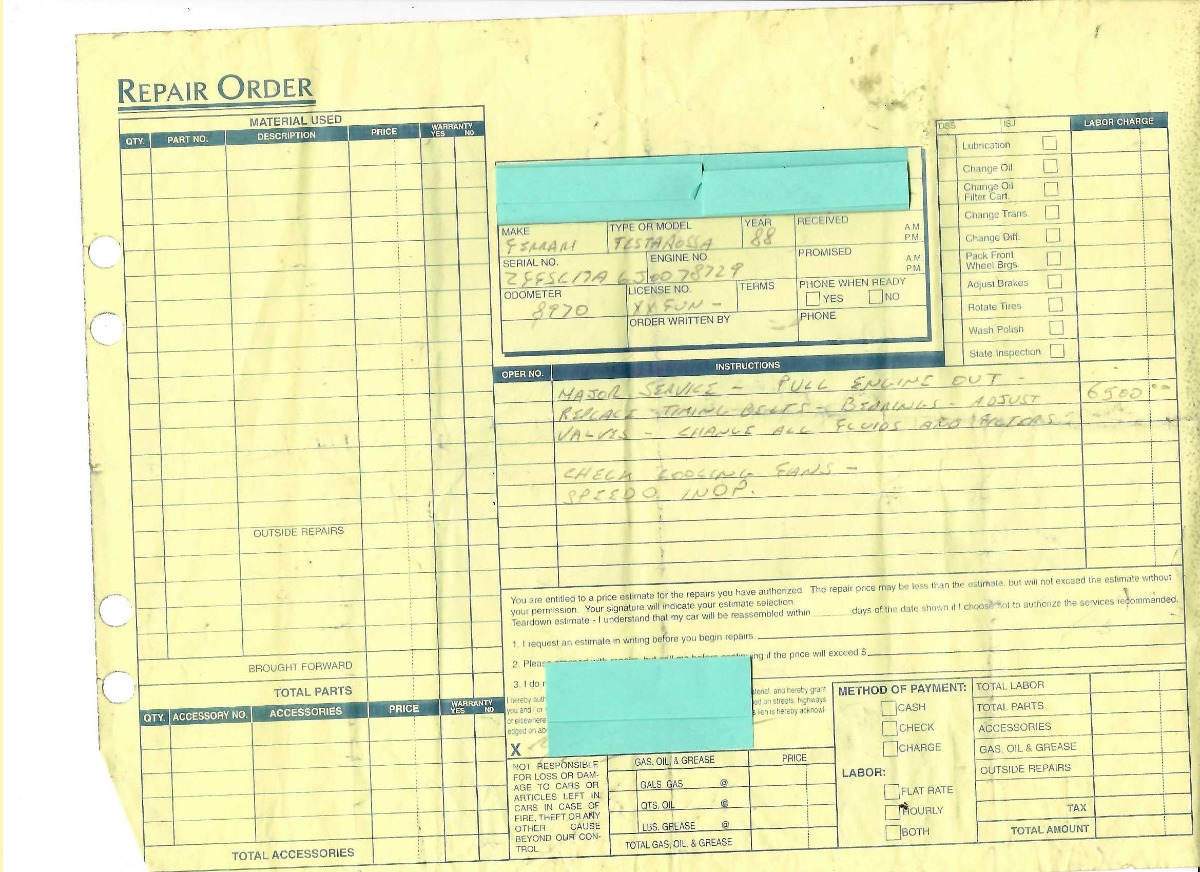 REPAIR ORDER
MATERIAL USED
QTY. PART NO. DESCRIPTION PRICE WARRANTY YES NO
OUTSIDE REPAIRS
BROUGHT FORWARD
TOTAL PARTS
QTY. ACCESSORY NO. ACCESSORIES PRICE WARRANTY YES NO
TOTAL ACCESSORIES
MAKE TYPE OR MODEL YEAR RECEIVED A.M. P.M.
FERRARI TESTAROSSA 88
SERIAL NO. ENGINE NO. PROMISED A.M. P.M.
ODOMETER LICENSE NO. TERMS PHONE WHEN READY
8970 XXFUN - YES NO
ORDER WRITTEN BY PHONE
LABOR CHARGE
Lubrication
Change Oil
Change Oil Filter Cart.
Change Trans.
Change Diff.
Pack Front Wheel Brgs.
Adjust Brakes
Rotate Tires
Wash Polish
State Inspection
OPER NO. INSTRUCTIONS
MAJOR SERVICE - PULL ENGINE OUT -
REPLACE TIMING BELTS - BEARINGS - ADJUST 6500.00
VALVES - CHANGE ALL FLUIDS AND FILTERS
CHECK COOLING FANS -
SPEEDO INOP.
You are entitled to a price estimate for the repairs you have authorized. The repair price may be less than the estimate, but will not exceed the estimate without
your permission. Your signature will indicate your estimate selection.
Teardown estimate - I understand that my car will be reassembled within days of the date shown if I choose not to authorize the services recommended.
1. I request an estimate in writing before you begin repairs.
2. Please if the price will exceed $
3. I do
I hereby and hereby grant
you and / or on streets, highways
or elsewhere lien is hereby
edged on
X
NOT RESPONSIBLE
FOR LOSS OR DAM-
AGE TO CARS OR
ARTICLES LEFT IN
CARS IN CASE OF
FIRE, THEFT OR ANY
OTHER CAUSE
BEYOND OUR CON-
TROL.
GAS, OIL & GREASE PRICE
GALS. GAS @
QTS. OIL @
LBS. GREASE @
TOTAL GAS, OIL, & GREASE
METHOD OF PAYMENT:
CASH
CHECK
CHARGE
LABOR:
FLAT RATE
HOURLY
BOTH
TOTAL LABOR
TOTAL PARTS
ACCESSORIES
GAS, OIL & GREASE
OUTSIDE REPAIRS
TAX
TOTAL AMOUNT